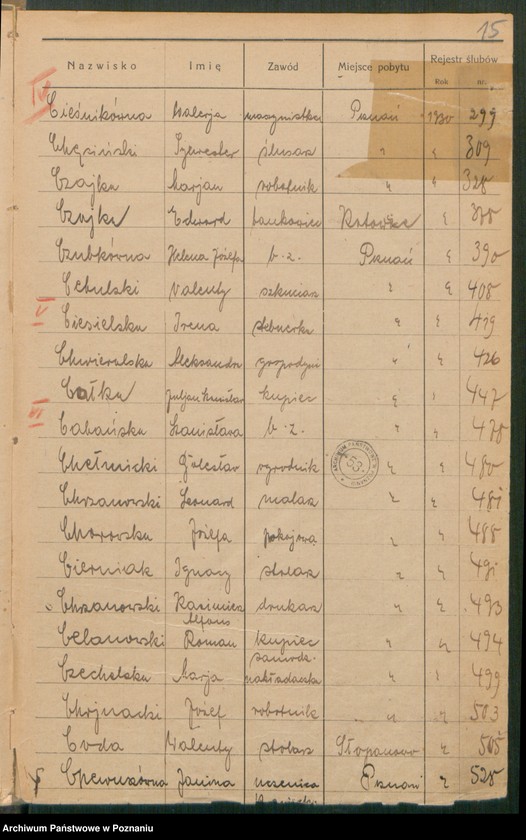 15
Nazwisko Imię Zawód Miejsce pobytu Rejestr ślubów
Rok nr.
IV
Cieśnikówna Walerja maszynistka Poznań 1930 299
Chęciński Sylwester ślusarz " " 309
Czajka Marjan robotnik " " 328
Czajka Edward bankowiec Katowice " 378
Czubkówna Helena Józefa b. z. Poznań " 390
Cebulski Walenty szklarz " " 408
V
Ciesielska Irena " " 419
Chwieralska Aleksandra gospodyni " " 426
Całka kupiec " " 447
VI
Cabańska Stanisława b. z. " " 478
Chełmicki Bolesław ogrodnik " " 480
Chrzanowski Leonard malarz " " 481
Chorowska Józefa pokojowa " " 488
Cierniak Ignacy stolarz " " 491
Chrzanowski Kazimierz drukarz " " 493
Alfons
Celanowski Roman kupiec " " 494
Czechelska Marja nakładaczka " " 499
Chojnacki Józef robotnik " " 503
Coda Walenty stolarz " 505
Janina uczenica Poznań " 528
Archiwum Państwowe w Poznaniu